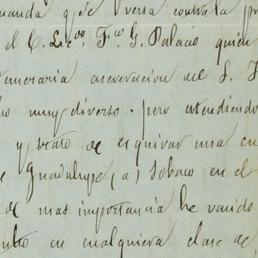 manda q.e versa contra la pr
el C. Lic.do F.co G. Palacio quien
temeraria aseveracion del S. F
ho muy diverso. pero atendiendo
y trato de esquivar una cu
e Guadalupe (a) Tobaco en el
de mas importancia he venido
en cualquiera clase de